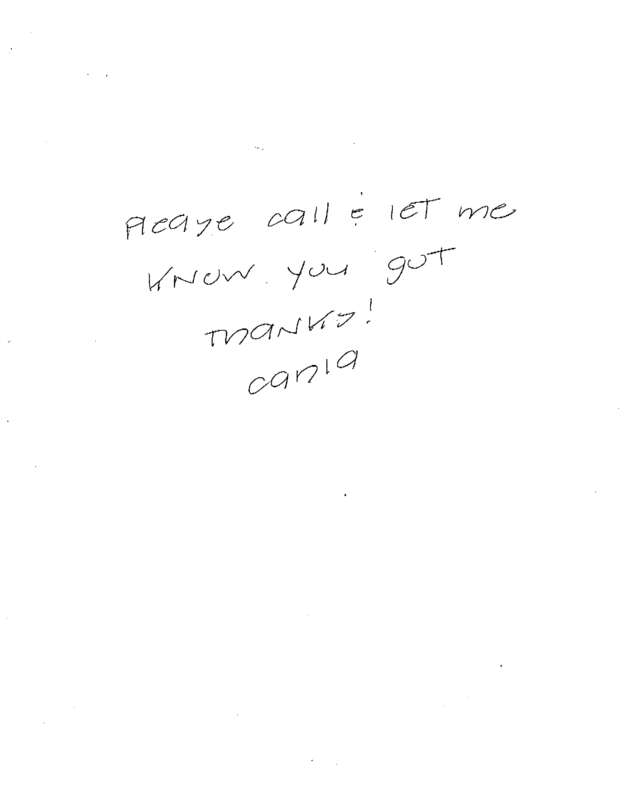 Please call & let me
know you got
Thanks!
Cania